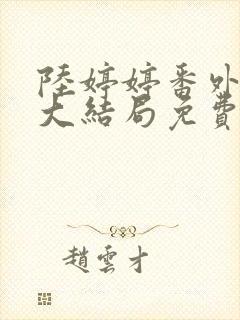 陸婷婷番外
大結局免費
趙雲才